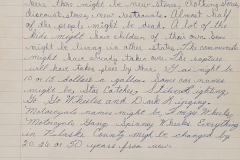 here there might be new stores, clothing stores,
discount stores, new restaurants. Almost half
of the people might be dead. A lot of the
kids might have children of their own. Some
might be living in other states. The communists
might have already taken over. The rapture
will have taken place by then. Gas might be
10 or 15 dollars a gallon. Some car names
might be Star Catcher, Silver Lightning,
St. Go Wheeler and Dark
Motorcycle names might be Wheeler
Motorcycle Gang, Wheeler. Everything
in Pulaski County might be changed by
20 30 or 50 years from now.